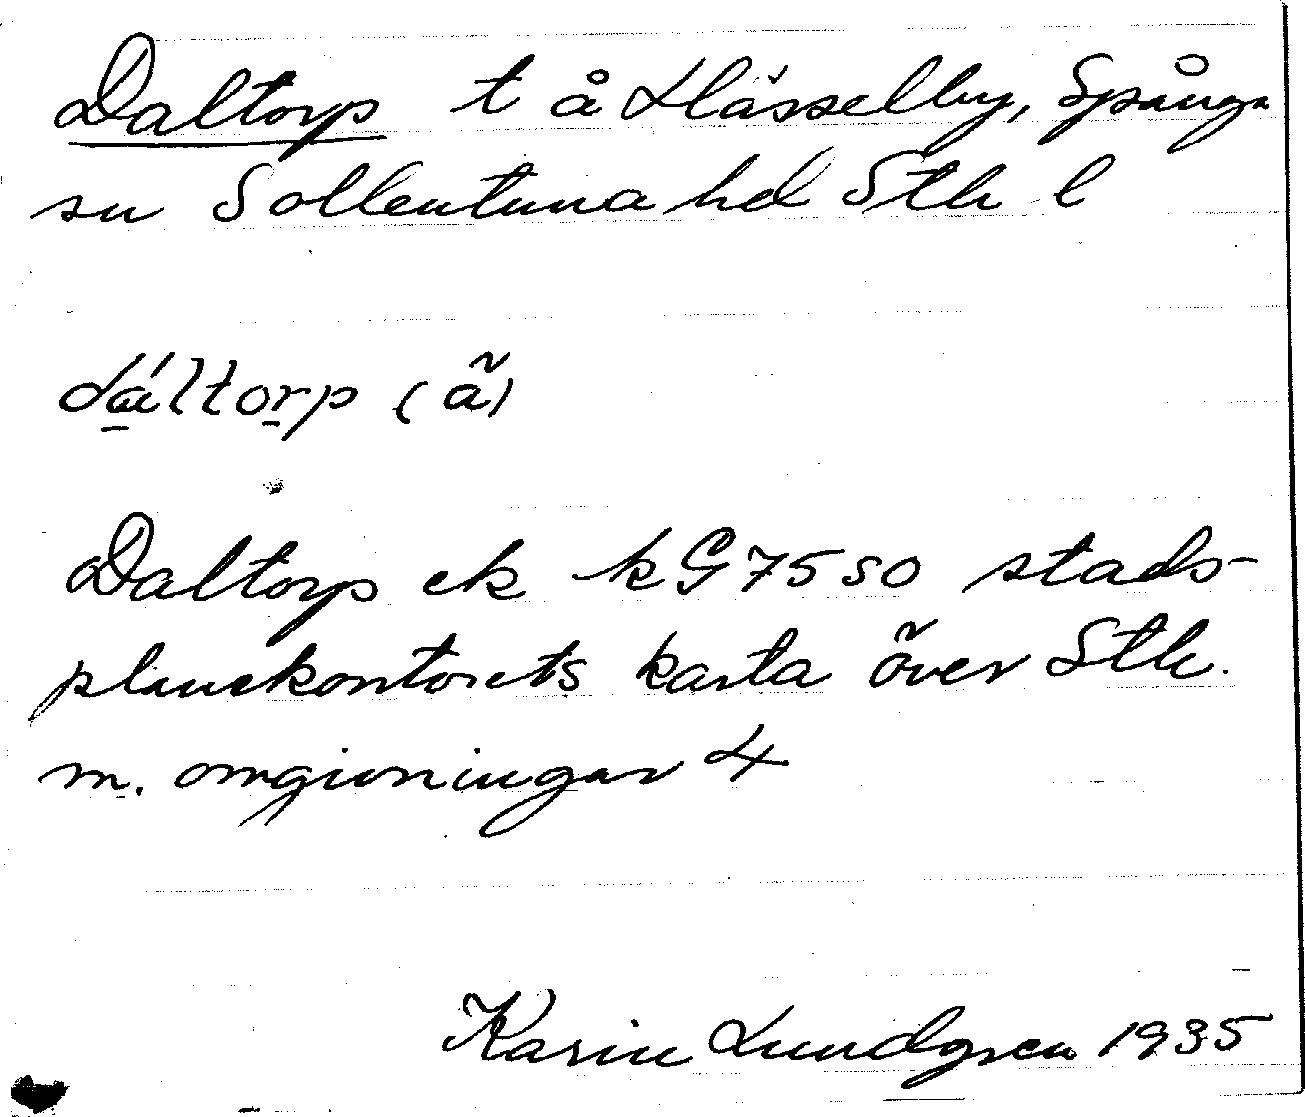 Daltorp t å Hässelby, Spånga
sn Sollentuna hd Sthlm l
dáltorp (ã)
Daltorp ek kG 75 SO stads-
planekontorets karta över Sthlm.
m. omgivningar 4
Karin Lundgren 1935